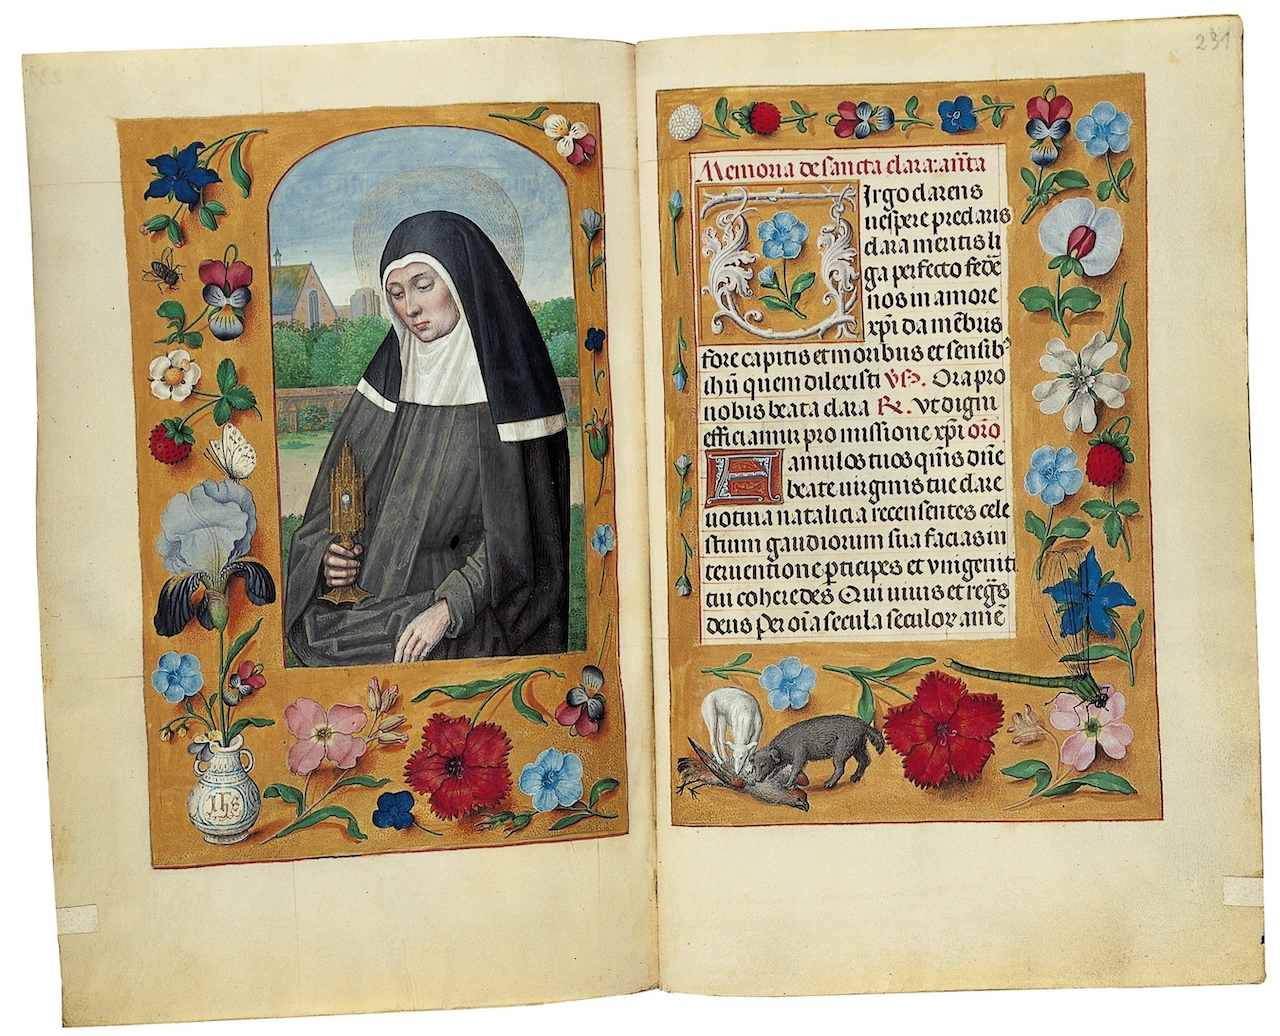 Ihs
231
Memoria de sancta clara: an̄ta
Uirgo clarens
uespere preclaris
clara meritis li
ga perfecto fede
nos in amore
xp̄i da mēbris
fore capitis et moribus et sensib⁹
ih̄u quem dilexisti V̄s. Ora pro
nobis beata clara R. Vt digni
efficiamur promissione xp̄i oro
Famulos tuos qm̄s dn̄e
beate uirginis tue clare
uotiua natalicia recensentes cele
stium gaudiorum sua facias in
teruentione ꝑticipes et vnigeniti
tui coheredes Qui uiuis et regs̄
deus Per oīa secula seculor amē